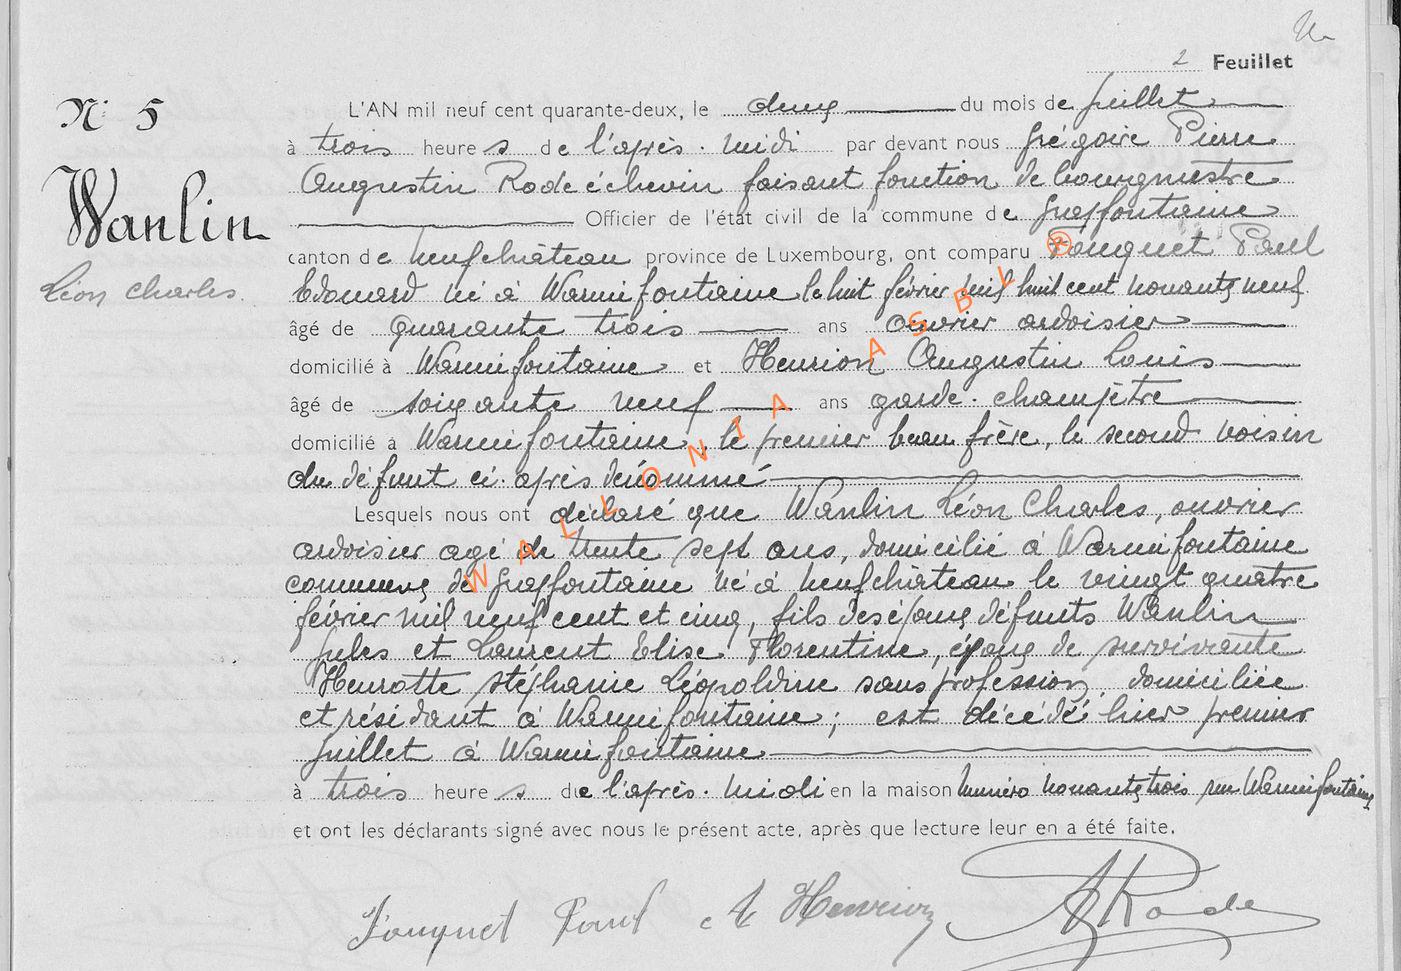 2 Feuillet
N° 5
L'AN mil neuf cent quarante-deux, le deux du mois de juillet
à trois heures de l'après-midi par devant nous Grégoire Pierre
Wanlin
Augustin Rode échevin faisant fonction de bourgmestre
Officier de l'état civil de la commune de Grapfontaine
canton de Neufchâteau province de Luxembourg, ont comparu Fouquet Paul
Léon Charles
Edouard né à Warmifontaine le huit février mil huit cent nonante neuf
âgé de quarante trois ans ouvrier ardoisier
domicilié à Warmifontaine et Henrion Augustin Louis
âgé de soixante neuf ans garde-champêtre
domicilié à Warmifontaine, le premier beau frère, le second voisin
du défunt ci-après dénommé
Lesquels nous ont déclaré que Wanlin Léon Charles, ouvrier
ardoisier agé de trente sept ans, domicilié à Warmifontaine
commune de Grapfontaine né à Neufchâteau le vingt quatre
février mil neuf cent et cinq, fils des époux défunts Wanlin
Jules et Laurent Elise Florentine, époux de survivante
Henrotte Stéphanie Léopoldine sans profession, domiciliée
et résidant à Warmifontaine; est décédé hier premier
juillet à Warmifontaine
à trois heures de l'après-midi en la maison numéro nonante trois rue Warmifontaine
et ont les déclarants signé avec nous le présent acte, après que lecture leur en a été faite.
Fouquet Paul A Henrion ARode
WALLONIA ASBL ®